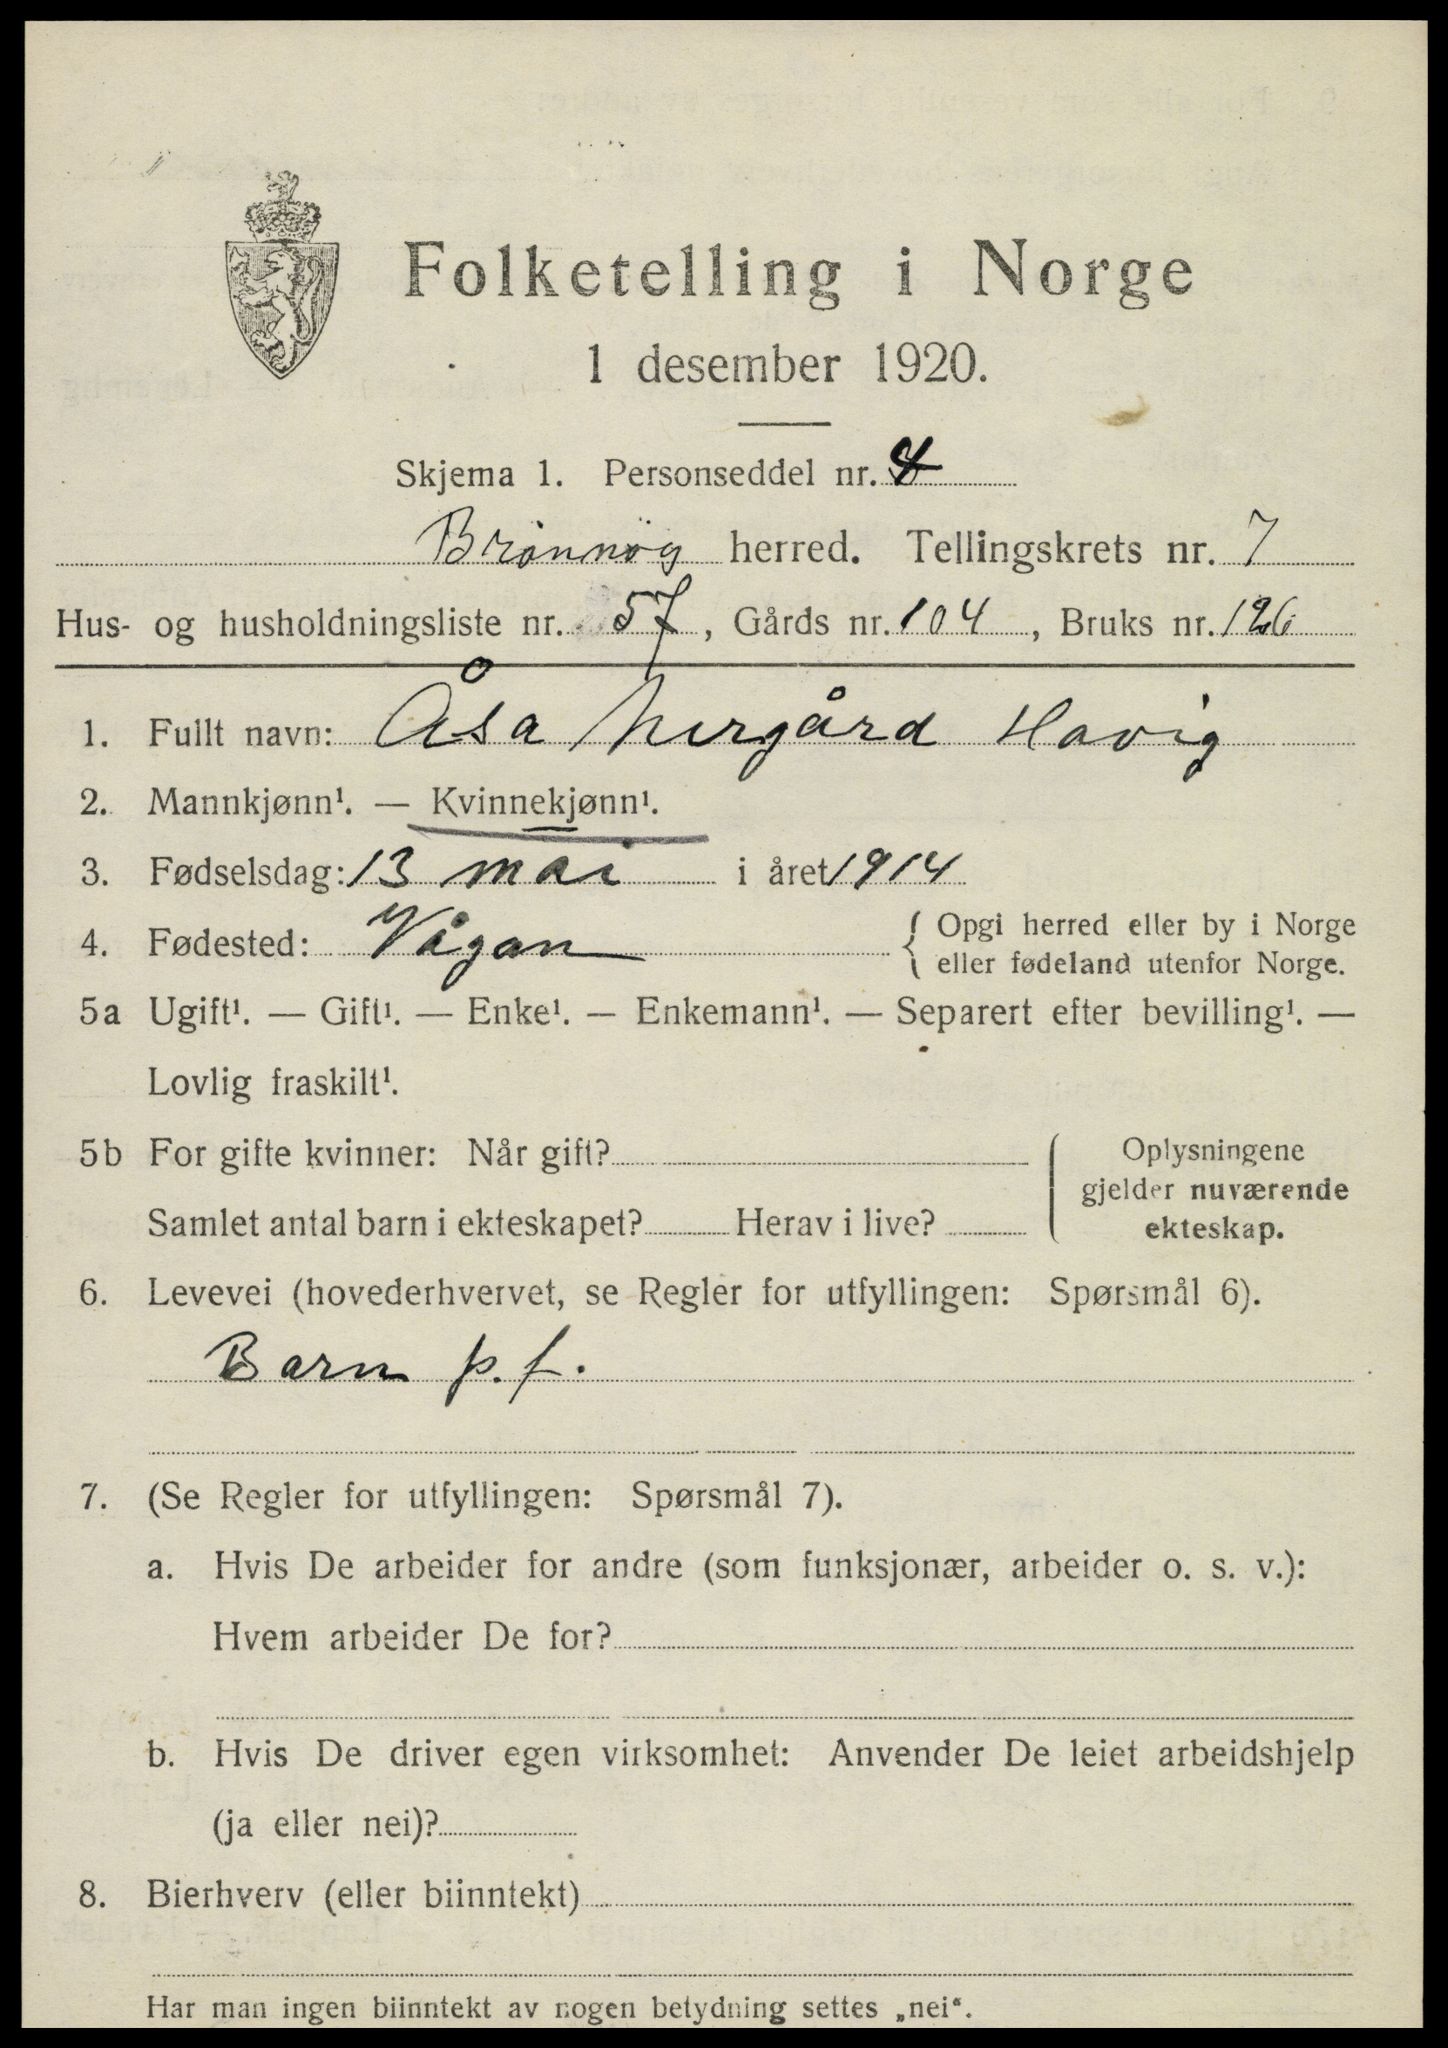 Folketelling i Norge
1 desember 1920.
Skjema 1. Personseddel nr. 4
Brønnøy herred. Tellingskrets nr. 7
Hus- og husholdningsliste nr. 57, Gårds nr. 104, Bruks nr. 126
1. Fullt navn: Åsa Nergård Havig
2. Mannkjønn¹. — Kvinnekjønn¹.
3. Fødselsdag: 13 mai i året 1914
4. Fødested: Vågan { Opgi herred eller by i Norge
eller fødeland utenfor Norge.
5a Ugift¹. — Gift¹. — Enke¹. — Enkemann¹. — Separert efter bevilling¹. —
Lovlig fraskilt¹.
5b For gifte kvinner: Når gift?
Samlet antal barn i ekteskapet? Herav i live?
Oplysningene
gjelder nuværende
ekteskap.
6. Levevei (hovederhvervet, se Regler for utfyllingen: Spørsmål 6).
Barn p. f.
7. (Se Regler for utfyllingen: Spørsmål 7).
a. Hvis De arbeider for andre (som funksjonær, arbeider o. s. v.):
Hvem arbeider De for?
b. Hvis De driver egen virksomhet: Anvender De leiet arbeidshjelp
(ja eller nei)?
8. Bierhverv (eller biinntekt)
Har man ingen biinntekt av nogen betydning settes „nei“.